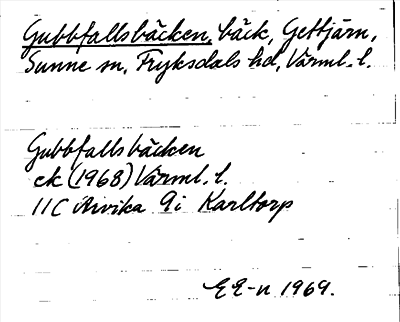 Gubbfallsbäcken, bäck, Gettjärn,
Sunne sn, Fryksdals hd, Värml. l.
Gubbfallsbäcken
ek (1968) Värml. l.
11C Arvika 9i Karltorp
EE-n 1969.